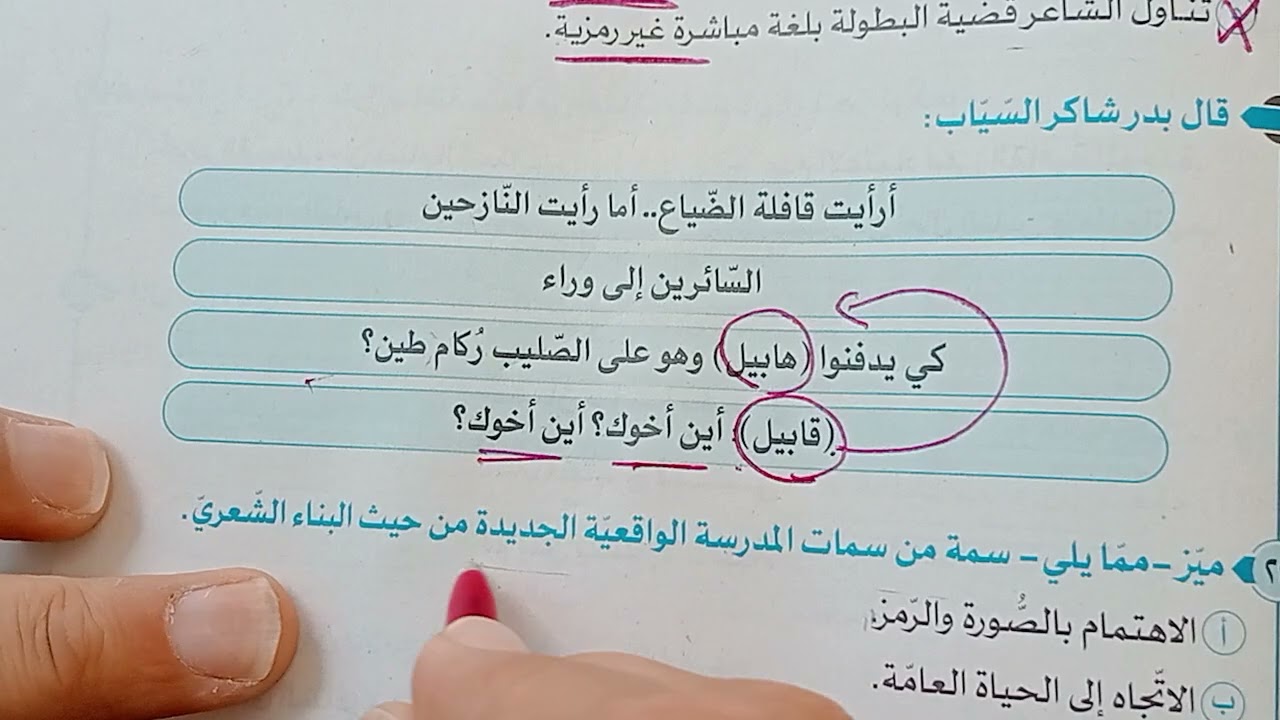 تناول الشاعر قضية البطولة بلغة مباشرة غير رمزية.
قال بدر شاكر السَيَاب:
أرأيت قافلة الضّياع.. أما رأيت النّازحين
السّائرين إلى وراء
كي يدفنوا (هابيل) وهو على الصّليب رُكام طين؟
(قابيل) أين أخوك؟ أين أخوك؟
٢ ميّز - ممّا يلي - سمة من سمات المدرسة الواقعيّة الجديدة من حيث البناء الشّعريّ.
أ الاهتمام بالصُّورة والرّمز.
ب الاتّجاه إلى الحياة العامّة.